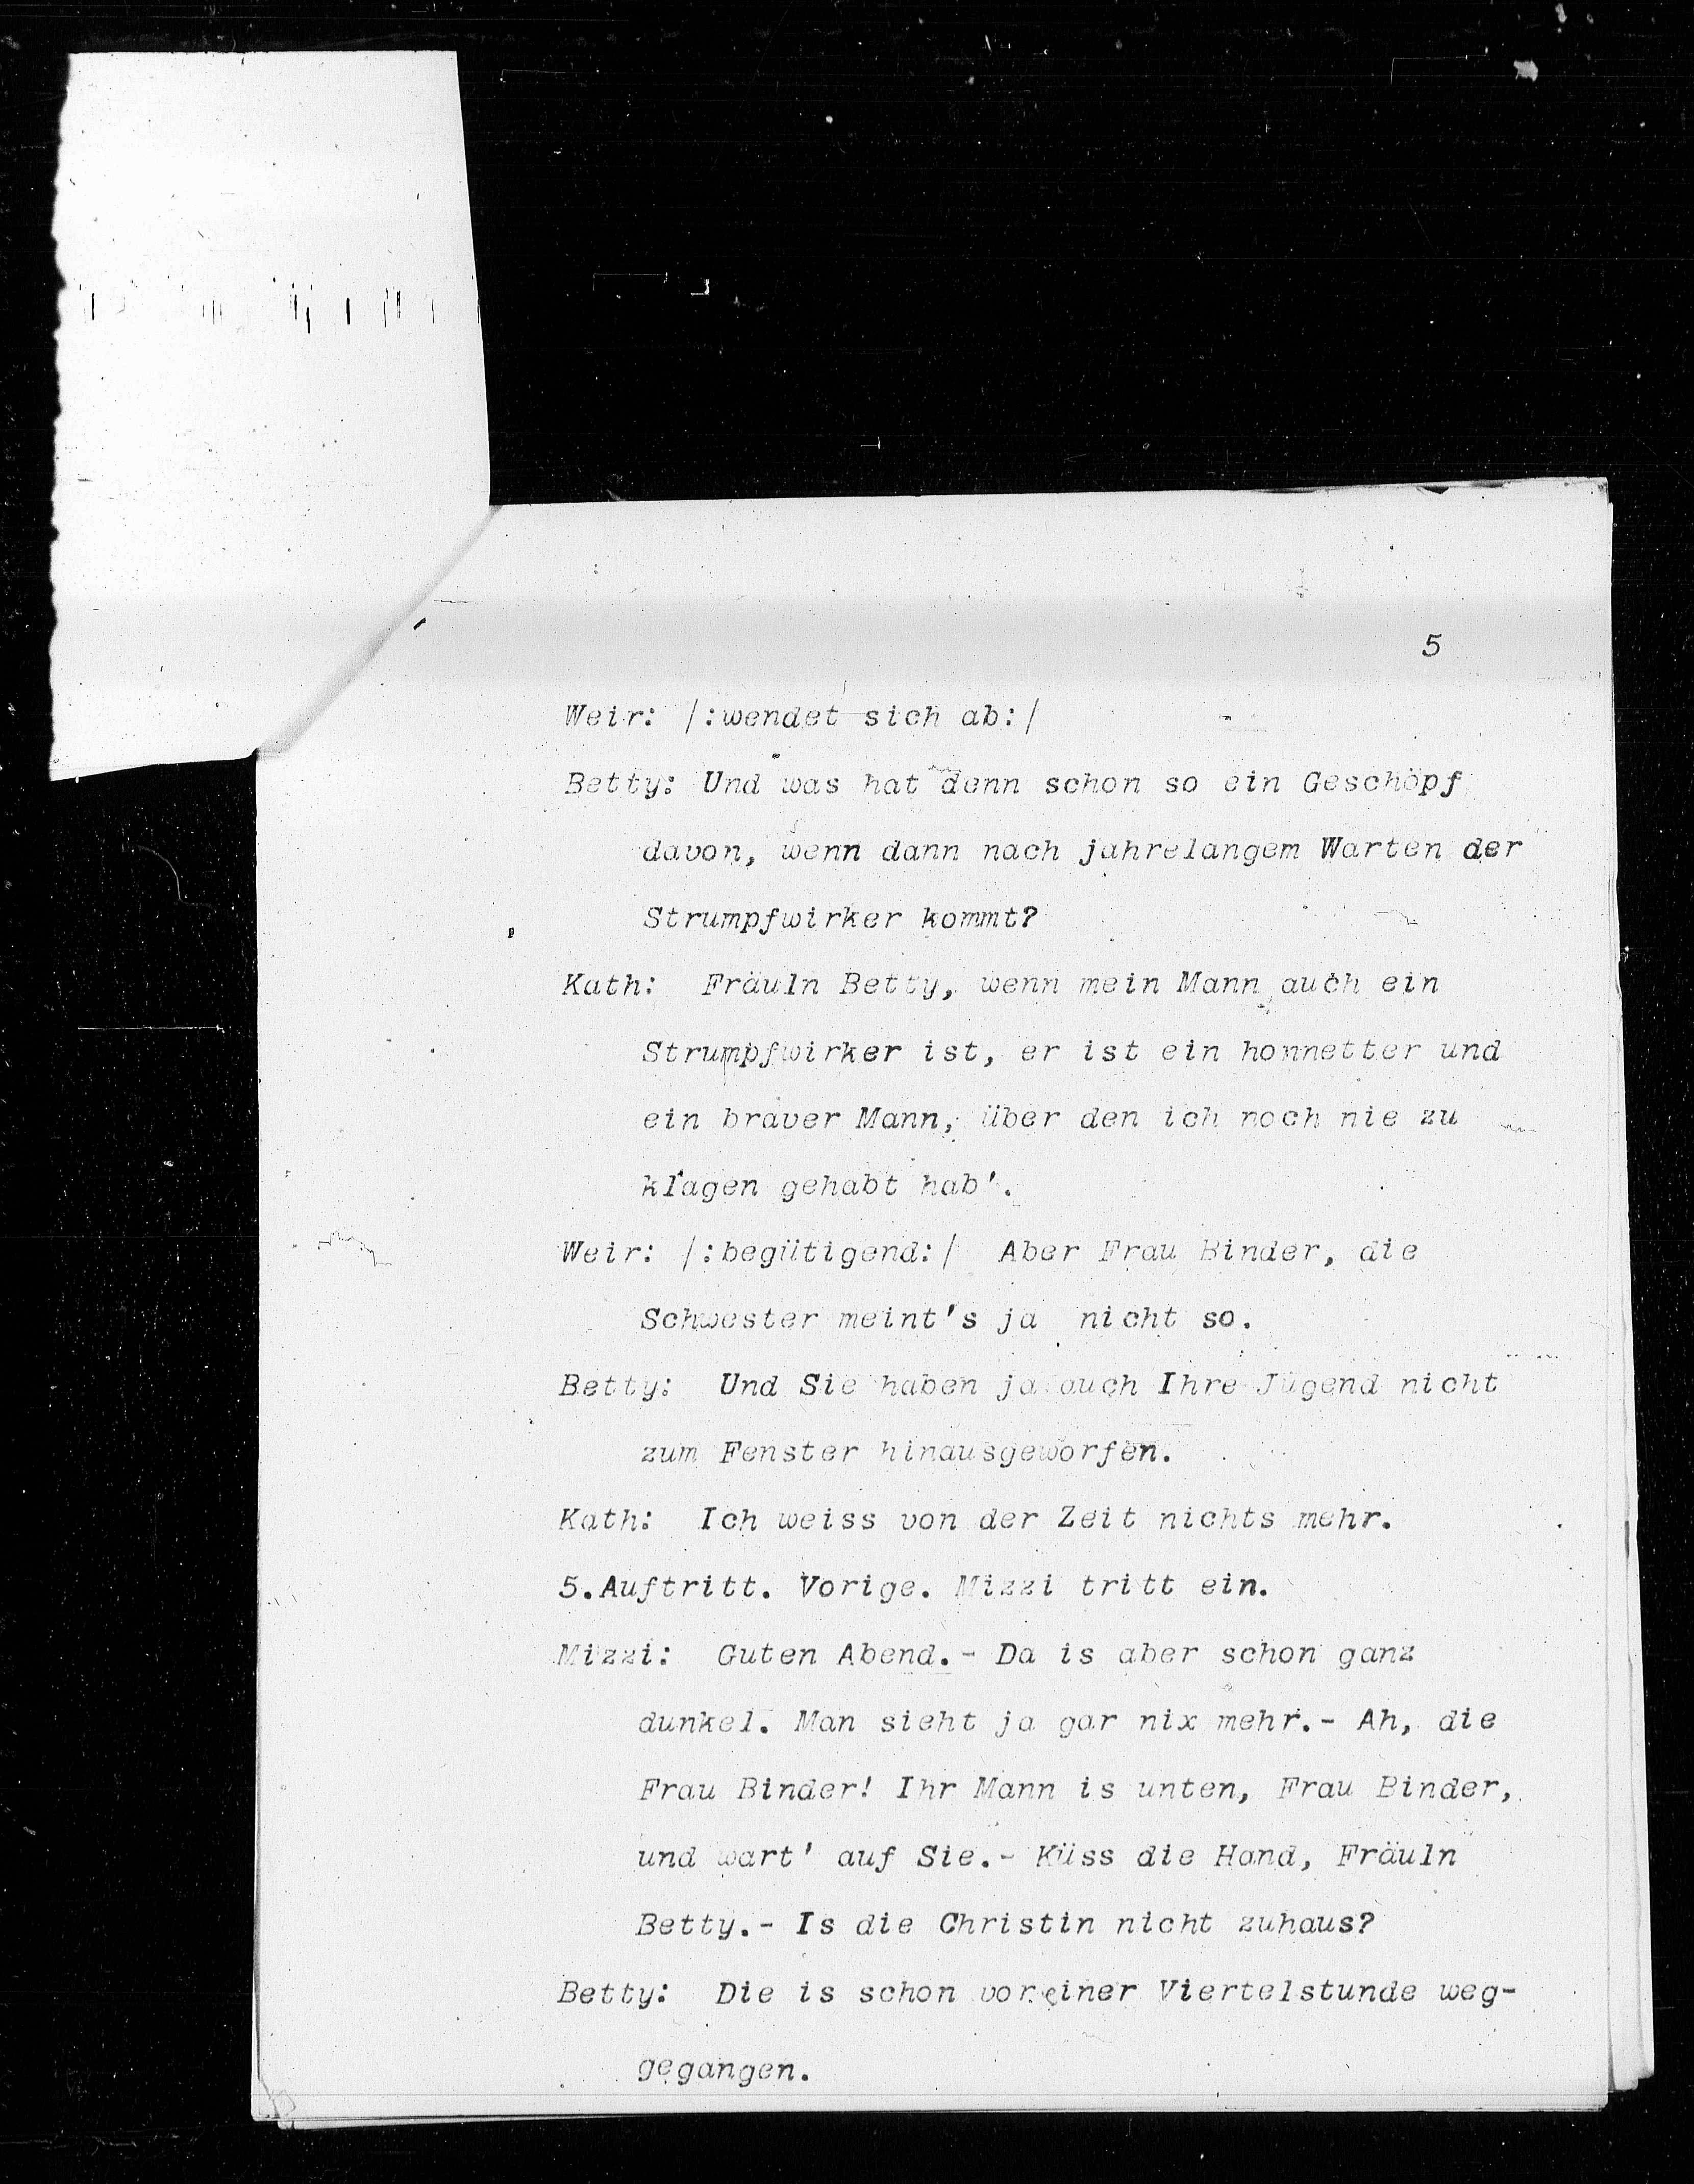 5
Weir: /:wendet sich ab:/
Betty: Und was hat denn schon so ein Geschöpf
davon, wenn dann nach jahrelangem Warten der
Strumpfwirker kommt?
Kath: Fräuln Betty, wenn mein Mann auch ein
Strumpfwirker ist, er ist ein honnetter und
ein braver Mann, über den ich noch nie zu
klagen gehabt hab'.
Weir: /:begütigend:/ Aber Frau Binder, die
Schwester meint's ja nicht so.
Betty: Und Sie haben ja auch Ihre Jugend nicht
zum Fenster hinausgeworfen.
Kath: Ich weiss von der Zeit nichts mehr.
5.Auftritt. Vorige. Mizzi tritt ein.
Mizzi: Guten Abend.- Da is aber schon ganz
dunkel. Man sieht ja gar nix mehr.- Ah, die
Frau Binder! Ihr Mann is unten, Frau Binder,
und wart' auf Sie.- Küss die Hand, Fräuln
Betty.- Is die Christin nicht zuhaus?
Betty: Die is schon vor einer Viertelstunde weg-
gegangen.